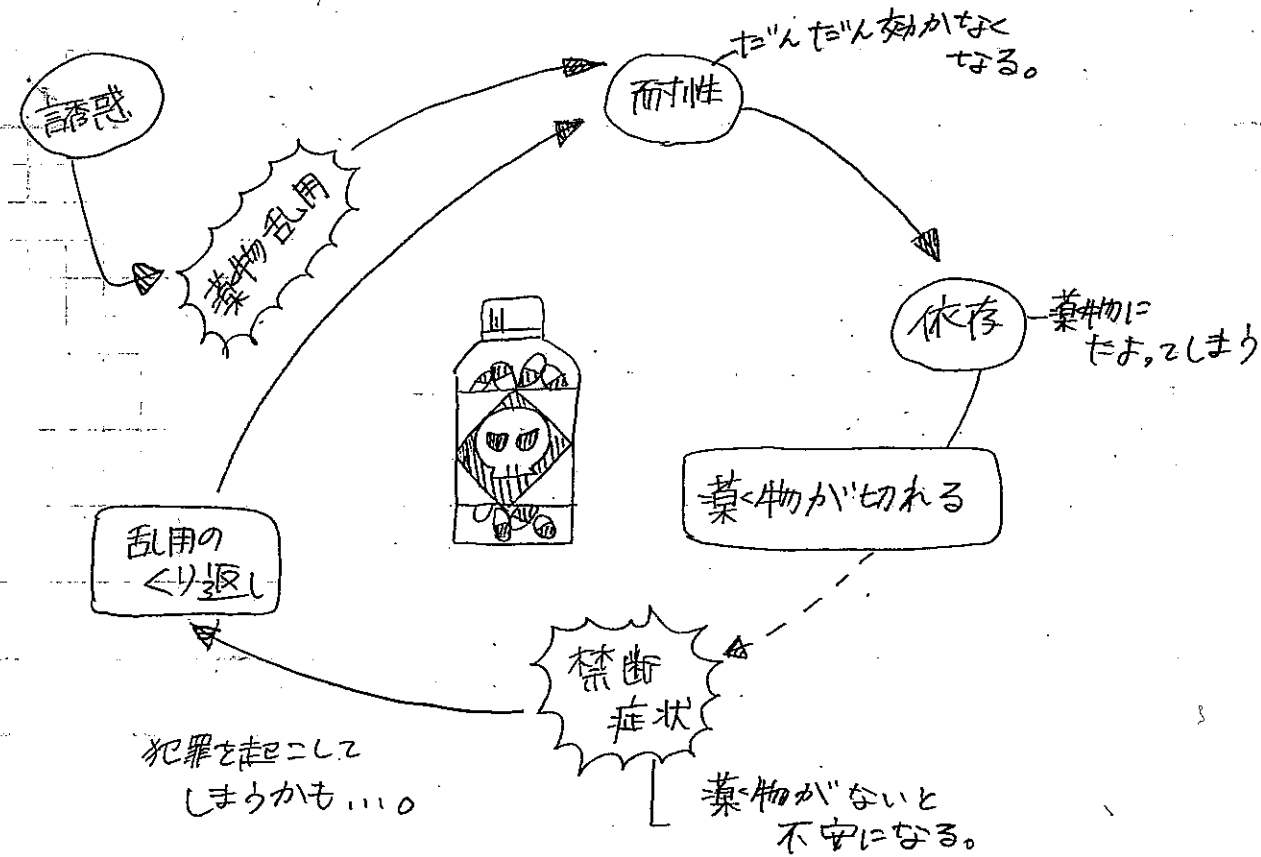 誘惑
薬物乱用
耐性
だんだん効かなく
なる。
依存
薬物に
たよってしまう
薬物が切れる
禁断
症状
薬物がないと
不安になる。
乱用の
くり返し
犯罪を起こして
しまうかも....。